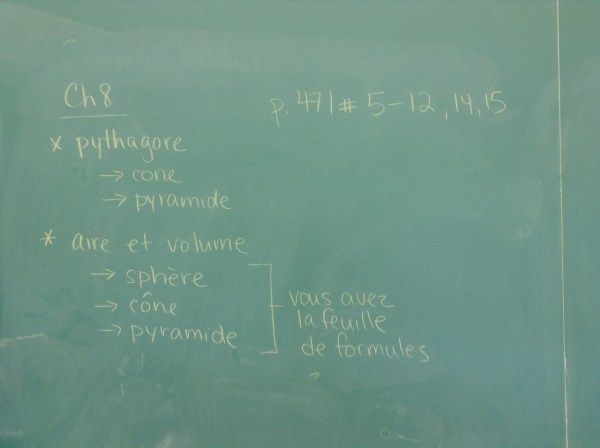 Ch 8
p. 471 # 5-12, 14, 15
* pythagore
→ cone
→ pyramide
* aire et volume
→ sphère
→ cône
→ pyramide
vous avez
la feuille
de formules